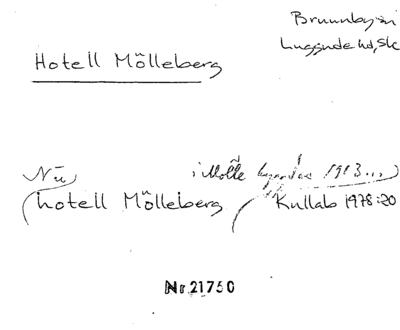 Brunnby sn
Luggude hd, Sk
Hotell Mölleberg
Nu i Mölle byggdes 1913...
hotell Mölleberg Kullab 1978:20
Nr 21750